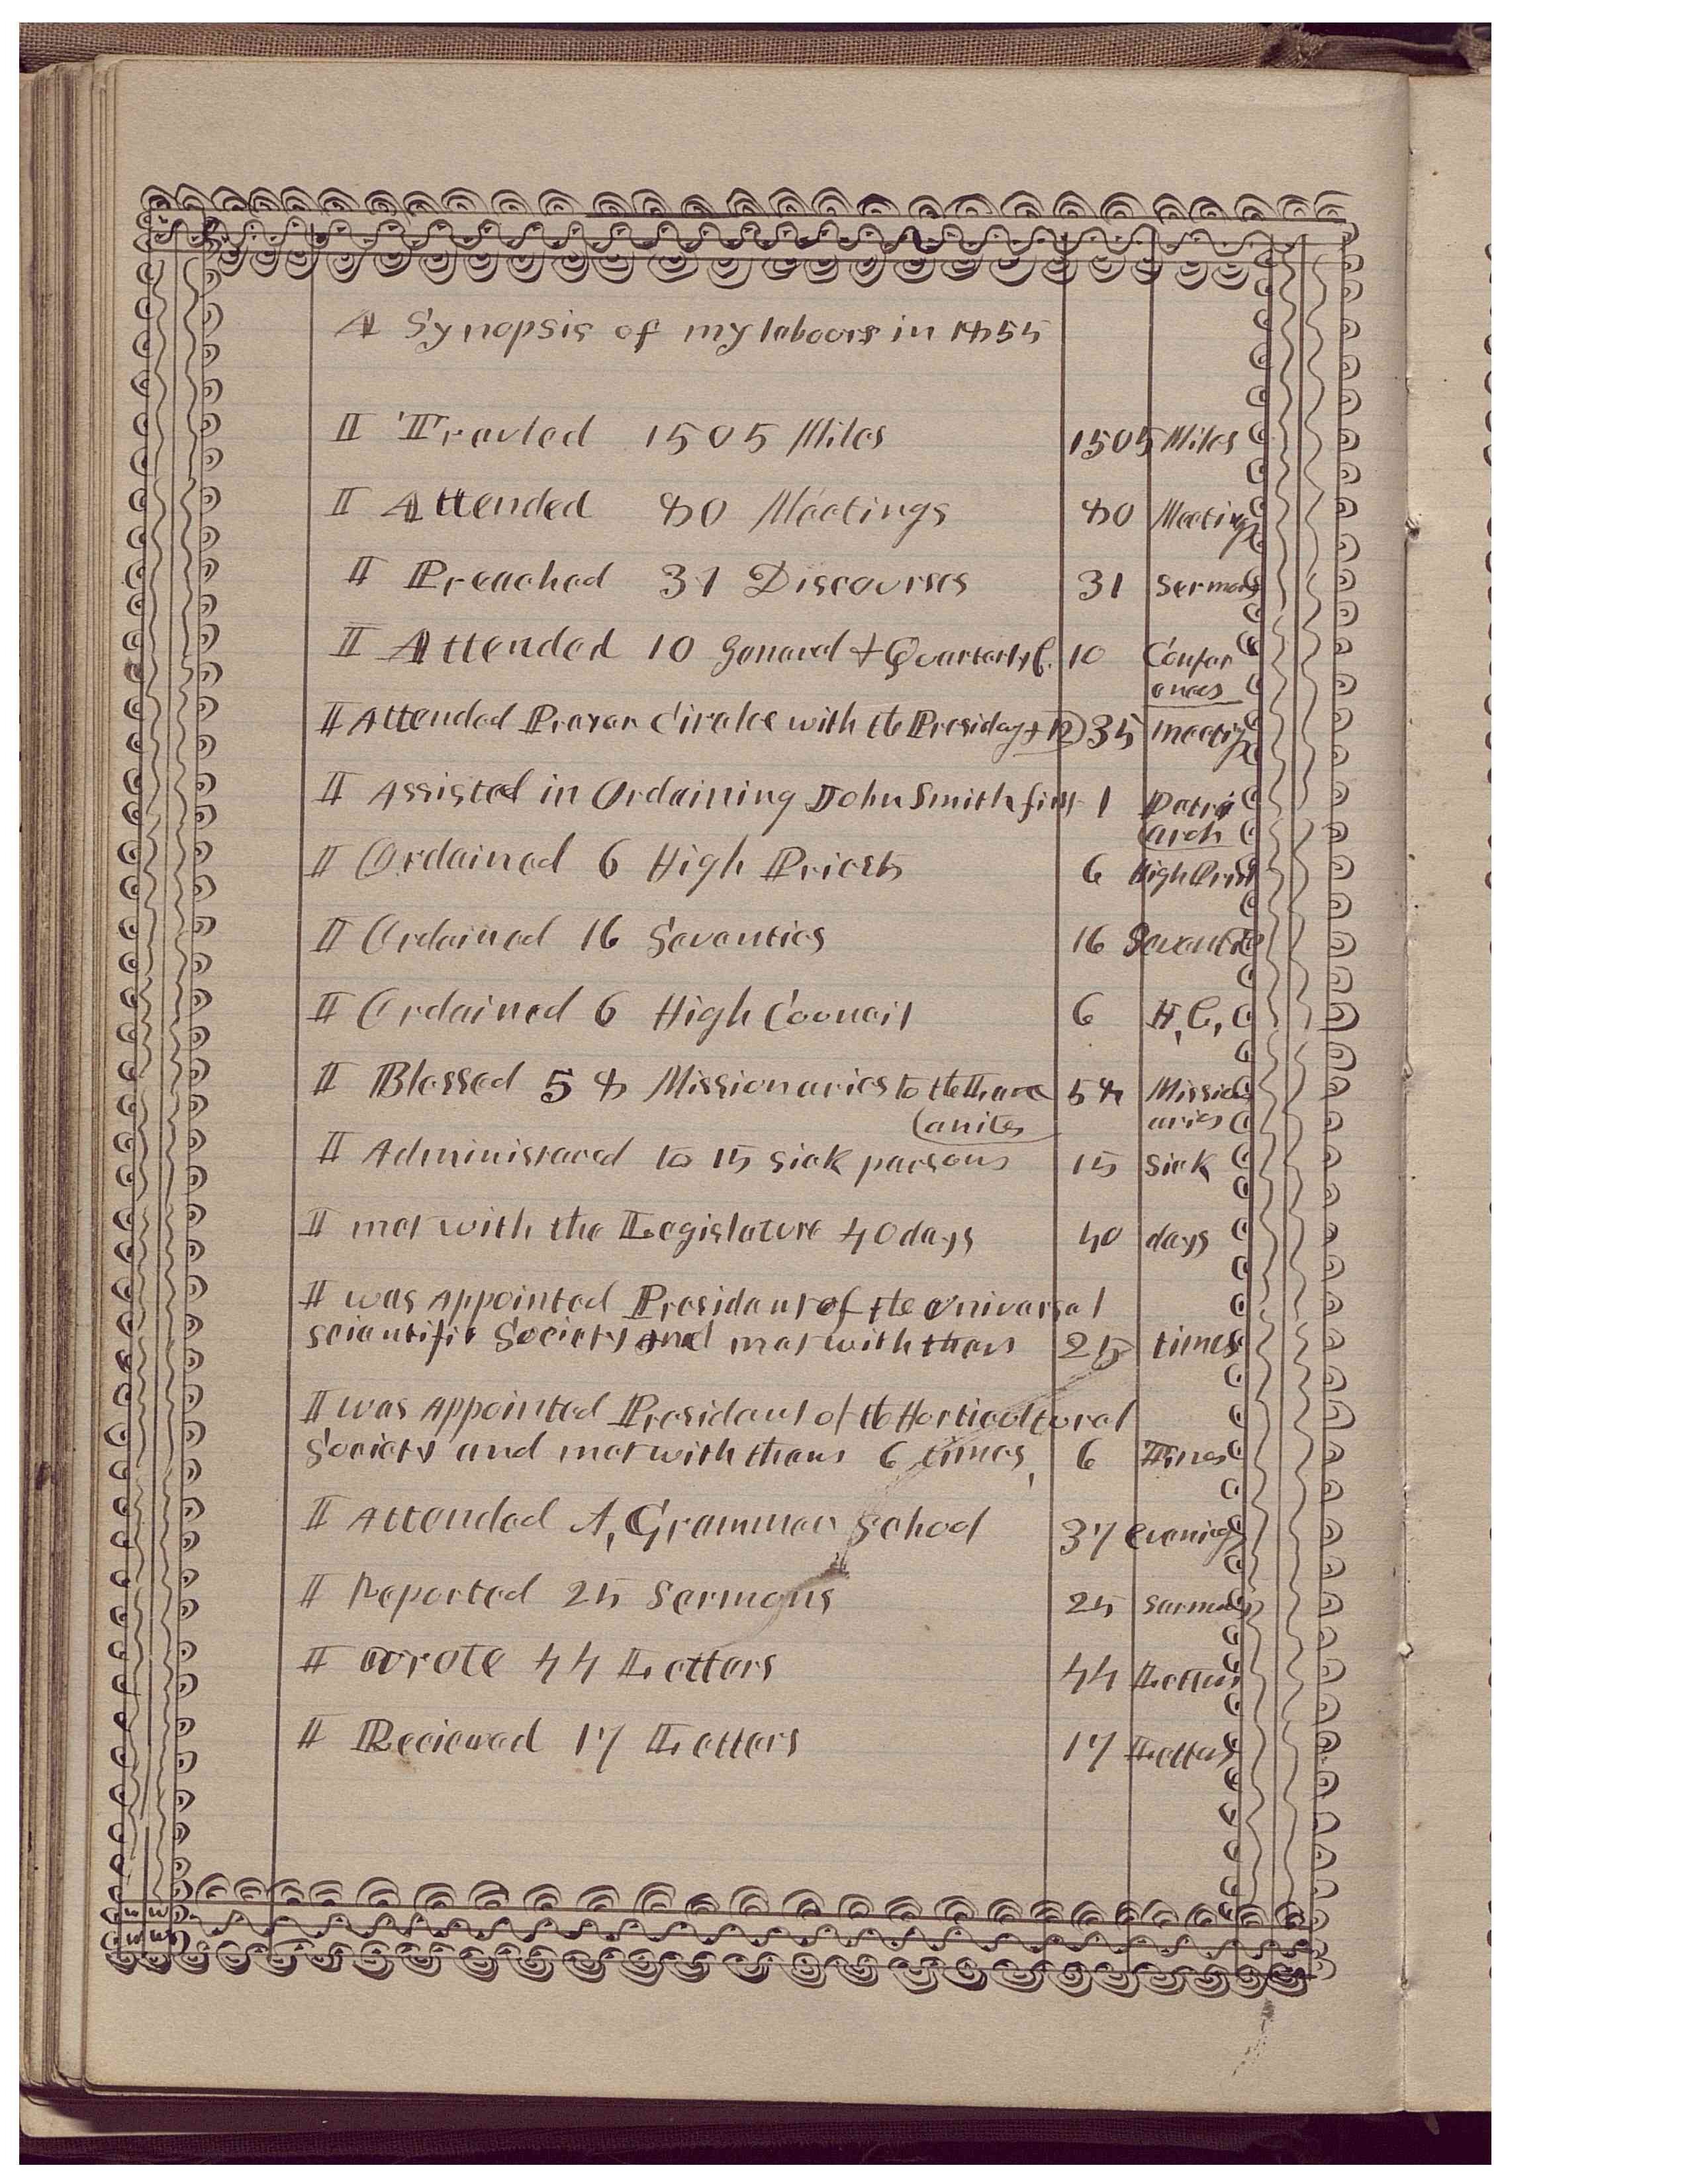 A Synopsis of my labours in 1855
I Travled 1505 Miles 1505 Miles
I Attended 80 Meetings 80 Meetings
I Preached 31 Discourses 31 Sermons
I Attended 10 General & Quarterly C. 10 Confer
ences
I Attended Prayer Circles with the Presidency & 12 35 meetings
I Assisted in Ordaining John Smith first 1 Patri
arch
I Ordained 6 High Priests 6 High Priest
I Ordained 16 Seventies 16 Seventies
I Ordained 6 High Council 6 H, C,
I Blessed 58 Missionaries to the 58 Mission
(anites aries
I Administered to 15 sick persons 15 Sick
I met with the Legislature 40 days 40 days
I was Appointed President of the Universal
scientific Society and met with them 25 times
I was Appointed President of the Horticultural
Society and met with them 6 times, 6 Times
I Attended A, Grammar School 37 evenings
I Reported 25 Sermons 25 Sermons
I wrote 44 Letters 44 Letters
I Recieved 17 Letters 17 Letters